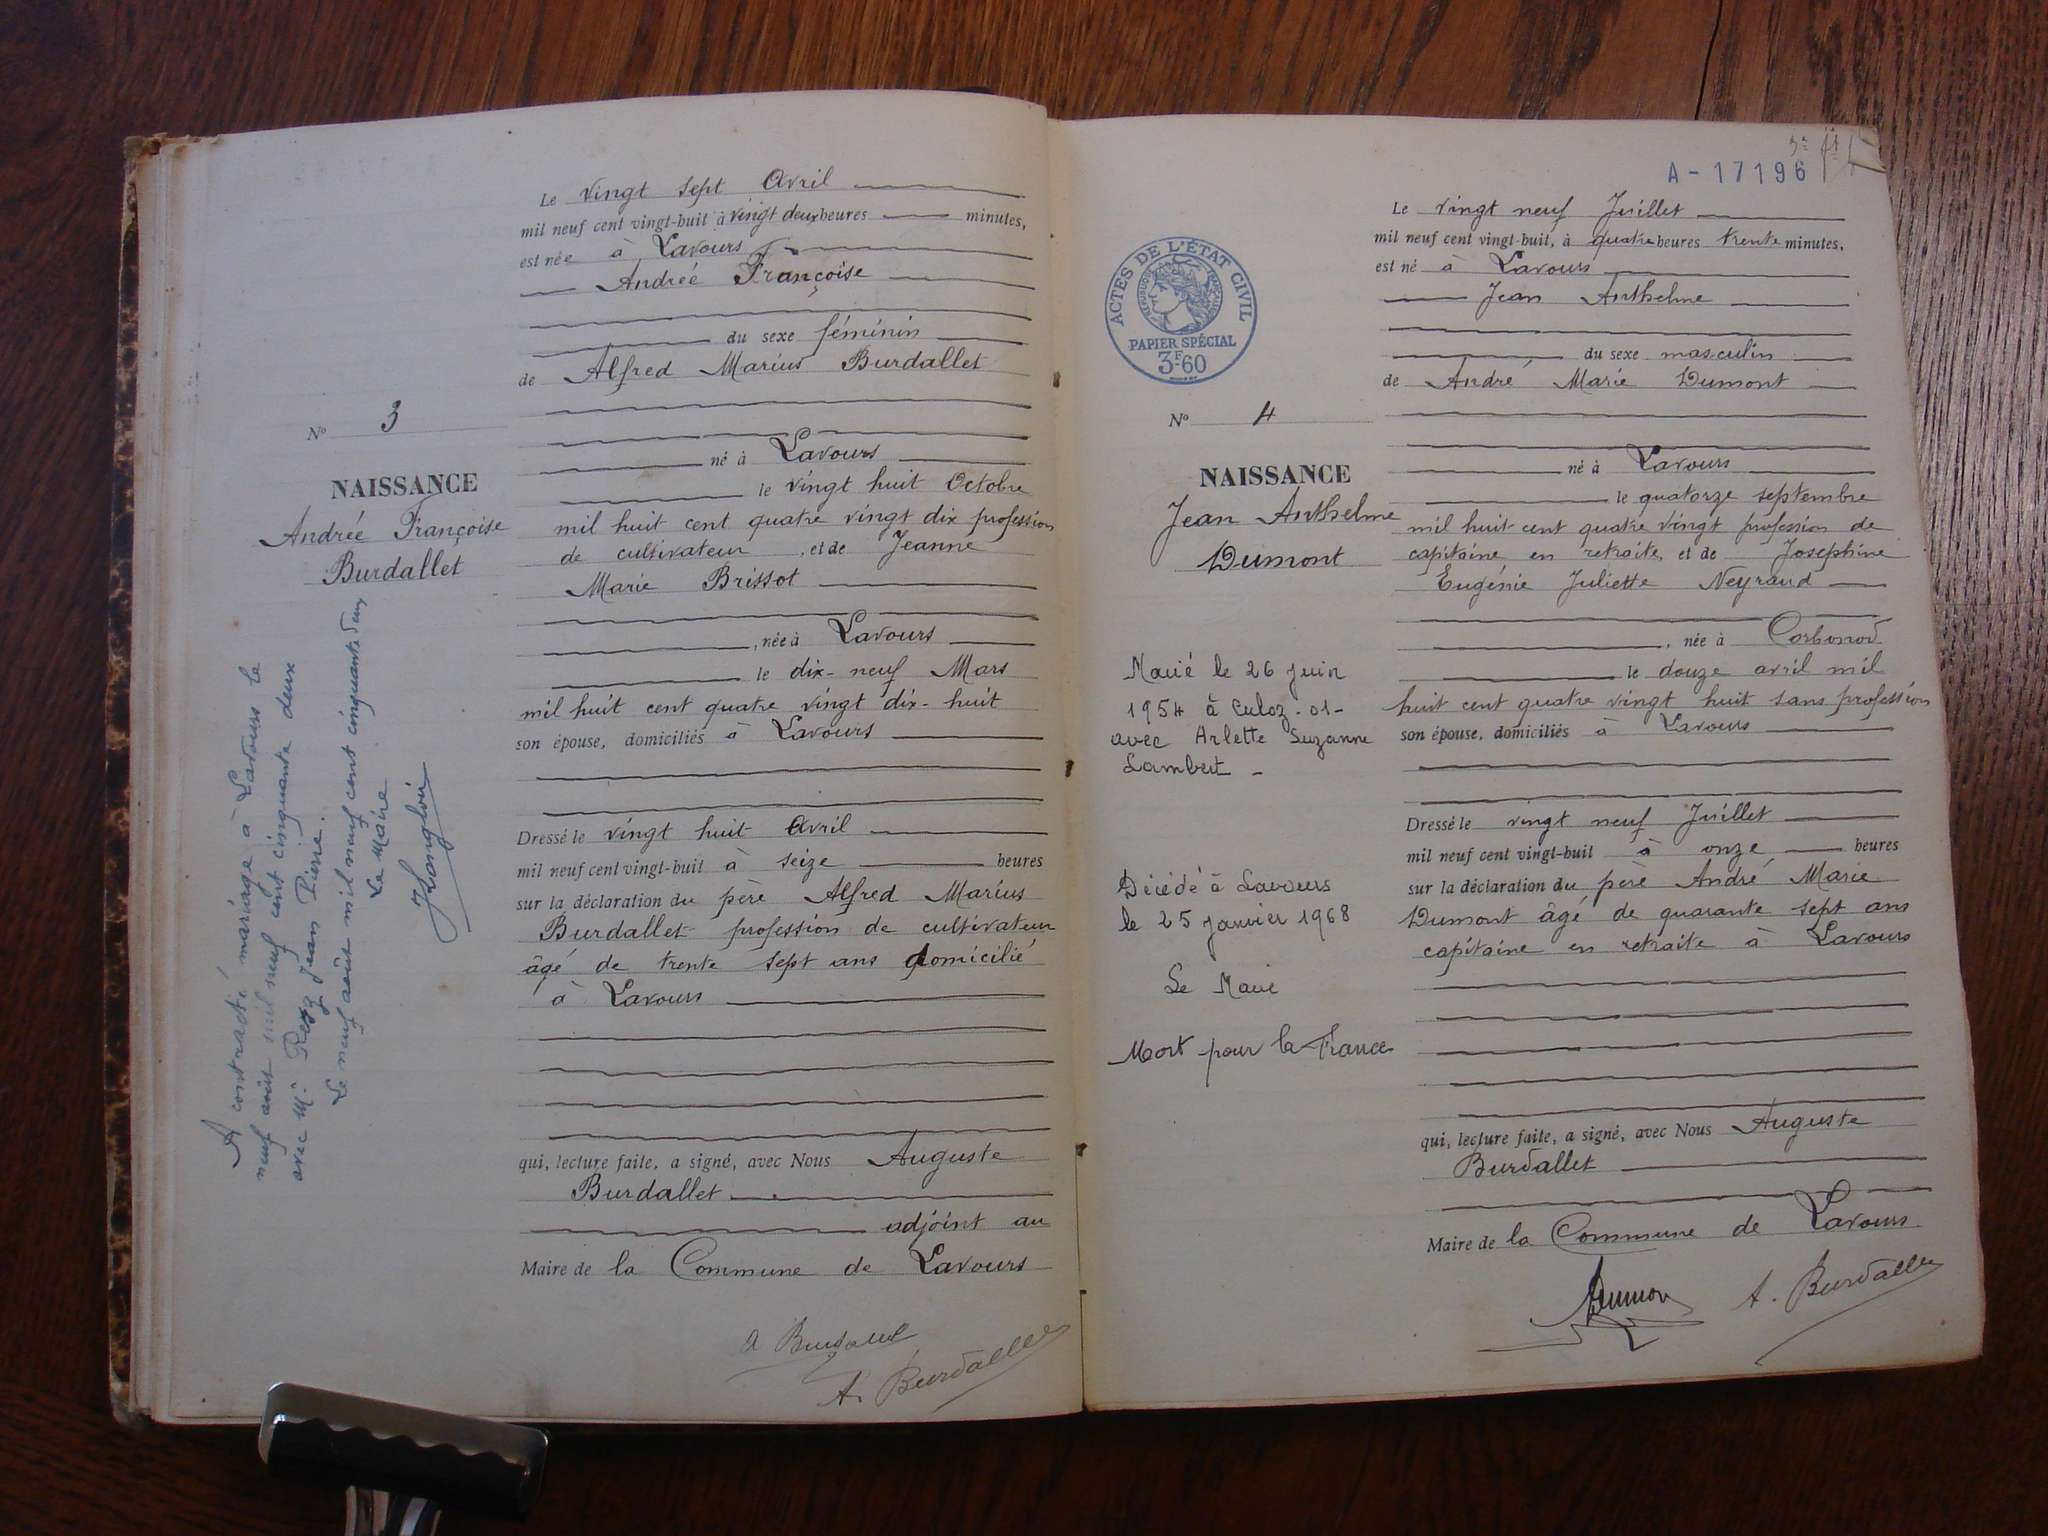 Le vingt sept Avril
mil neuf cent vingt-huit à vingt deux heures minutes,
est née à Lavours
Andrée Françoise
du sexe féminin
de Alfred Marius Burdallet
N° 3
né à Lavours
NAISSANCE
le vingt huit Octobre
Andrée Françoise
Burdallet
mil huit cent quatre vingt dix profession
de cultivateur, et de Jeanne
Marie Brissot
, née à Lavours
le dix-neuf Mars
mil huit cent quatre vingt dix-huit
son épouse, domiciliés à Lavours
Dressé le vingt huit Avril
mil neuf cent vingt-huit à seize heures
sur la déclaration du père Alfred Marius
Burdallet profession de cultivateur
âgé de trente sept ans domicilié
à Lavours
qui, lecture faite, a signé, avec Nous Auguste
Burdallet
adjoint au
Maire de la Commune de Lavours
A. Burdallet
A contracté mariage à Lavours le
neuf août mil neuf cent cinquante deux
avec Mr. Jean Pierre.
Le neuf août mil neuf cent cinquante deux
Le Maire
A-17196
Le vingt neuf Juillet
mil neuf cent vingt-huit, à quatre heures trente minutes,
est né à Lavours
Jean Anthelme
du sexe masculin
de André Marie Dumont
ACTES DE L'ÉTAT CIVIL
PAPIER SPÉCIAL
3F60
N° 4
né à Lavours
NAISSANCE
Jean Anthelme
Dumont
le quatorze septembre
mil huit cent quatre vingt profession de
capitaine en retraite, et de Josephine
Eugénie Juliette Neyraud
, née à Corbonod
le douze avril mil
huit cent quatre vingt huit sans profession
son épouse, domiciliés à Lavours
Dressé le vingt neuf Juillet
mil neuf cent vingt-huit à onze heures
sur la déclaration du père André Marie
Dumont âgé de quarante sept ans
capitaine en retraite à Lavours
qui, lecture faite, a signé, avec Nous Auguste
Burdallet
Maire de la Commune de Lavours
Dumont A. Burdallet
Marié le 26 juin
1954 à Culoz -01-
avec Arlette Suzanne
Lambert -
Décédé à Lavours
le 25 janvier 1968
Le Maire
Mort pour la France